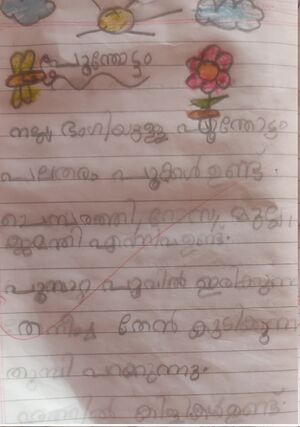 പൂന്തോട്ടം
നല്ല ഭംഗിയുള്ള പൂന്തോട്ടം
പലതരം പൂക്കൾ ഉണ്ട്.
ചെമ്പരത്തി, റോസ, മുല്ല,
ജമന്തി എന്നിവ ഉണ്ട്.
പൂമ്പാറ്റ പൂവിൽ ഇരിക്കുന്നു
തേൻ കുടിക്കുന്നു
തുമ്പി പറക്കുന്നു.
കിളികൾ ഉണ്ട്.